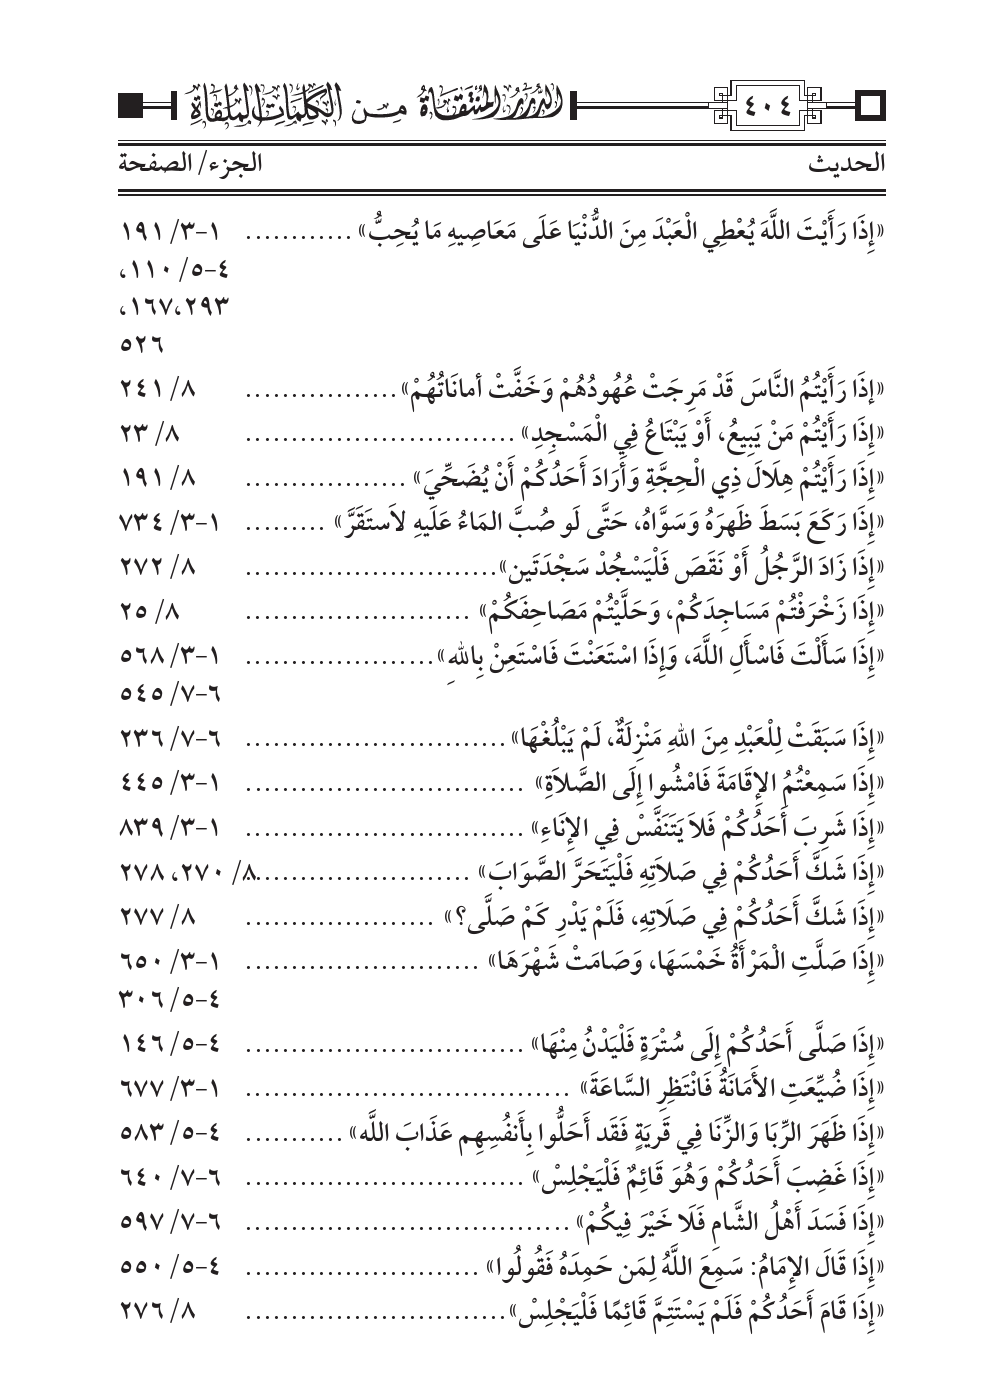 ٤٠٤ الدُّرَرُ المُنْتَقَاةُ مِن الكَلِمَاتِ المُلْقَاةِ
الحديث الجزء/ الصفحة
«إِذَا رَأَيْتَ اللَّهَ يُعْطِي الْعَبْدَ مِنَ الدُّنْيَا عَلَى مَعَاصِيهِ مَا يُحِبُّ» ............ ١-٣/ ١٩١
٤-٥/ ١١٠،
٢٩٣،١٦٧،
٥٢٦
«إِذَا رَأَيْتُمُ النَّاسَ قَدْ مَرِجَتْ عُهُودُهُمْ وَخَفَّتْ أمانَاتُهُمْ» ................. ٨/ ٢٤١
«إِذَا رَأَيْتُمْ مَنْ يَبِيعُ، أَوْ يَبْتَاعُ فِي الْمَسْجِدِ» .............................. ٨/ ٢٣
«إِذَا رَأَيْتُمْ هِلَالَ ذِي الْحِجَّةِ وَأَرَادَ أَحَدُكُمْ أَنْ يُضَحِّيَ» .................. ٨/ ١٩١
«إِذَا رَكَعَ بَسَطَ ظَهرَهُ وَسَوَّاهُ، حَتَّى لَو صُبَّ المَاءُ عَلَيهِ لاَستَقَرَّ» ......... ١-٣/ ٧٣٤
«إِذَا زَادَ الرَّجُلُ أَوْ نَقَصَ فَلْيَسْجُدْ سَجْدَتَين» ............................ ٨/ ٢٧٢
«إِذَا زَخْرَفْتُمْ مَسَاجِدَكُمْ، وَحَلَّيْتُمْ مَصَاحِفَكُمْ» ......................... ٨/ ٢٥
«إِذَا سَأَلْتَ فَاسْأَلِ اللَّهَ، وَإِذَا اسْتَعَنْتَ فَاسْتَعِنْ بِاللهِ» ..................... ١-٣/ ٥٦٨
٦-٧/ ٥٤٥
«إِذَا سَبَقَتْ لِلْعَبْدِ مِنَ اللهِ مَنْزِلَةٌ، لَمْ يَبْلُغْهَا» ............................. ٦-٧/ ٢٣٦
«إِذَا سَمِعْتُمُ الإِقَامَةَ فَامْشُوا إِلَى الصَّلاَةِ» ............................... ١-٣/ ٤٤٥
«إِذَا شَرِبَ أَحَدُكُمْ فَلاَ يَتَنَفَّسْ فِي الإِنَاءِ» ............................... ١-٣/ ٨٣٩
«إِذَا شَكَّ أَحَدُكُمْ فِي صَلاَتِهِ فَلْيَتَحَرَّ الصَّوَابَ» ......................... ٨/ ٢٧٠، ٢٧٨
«إِذَا شَكَّ أَحَدُكُمْ فِي صَلَاتِهِ، فَلَمْ يَدْرِ كَمْ صَلَّى؟» ..................... ٨/ ٢٧٧
«إِذَا صَلَّتِ الْمَرْأَةُ خَمْسَهَا، وَصَامَتْ شَهْرَهَا» .......................... ١-٣/ ٦٥٠
٤-٥/ ٣٠٦
«إِذَا صَلَّى أَحَدُكُمْ إِلَى سُتْرَةٍ فَلْيَدْنُ مِنْهَا» ............................... ٤-٥/ ١٤٦
«إِذَا ضُيِّعَتِ الأَمَانَةُ فَانْتَظِرِ السَّاعَةَ» .................................... ١-٣/ ٦٧٧
«إِذَا ظَهَرَ الرِّبَا وَالزِّنَا فِي قَريَةٍ فَقَد أَحَلُّوا بِأَنفُسِهِم عَذَابَ اللَّه» ........... ٤-٥/ ٥٨٣
«إِذَا غَضِبَ أَحَدُكُمْ وَهُوَ قَائِمٌ فَلْيَجْلِسْ» ............................... ٦-٧/ ٦٤٠
«إِذَا فَسَدَ أَهْلُ الشَّامِ فَلَا خَيْرَ فِيكُمْ» .................................... ٦-٧/ ٥٩٧
«إِذَا قَالَ الإِمَامُ: سَمِعَ اللَّهُ لِمَن حَمِدَهُ فَقُولُوا» .......................... ٤-٥/ ٥٥٠
«إِذَا قَامَ أَحَدُكُمْ فَلَمْ يَسْتَتِمَّ قَائِمًا فَلْيَجْلِسْ» ............................. ٨/ ٢٧٦